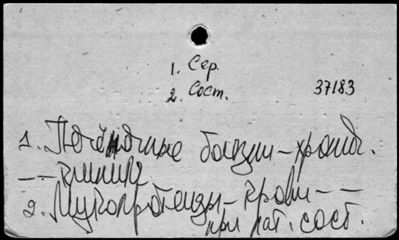 1. Сер.
2. Сост.
37183
1. Печёночные болезни – хронич.
– – клиника
2. Мукопротеиды – крови – –
при пат. сост.